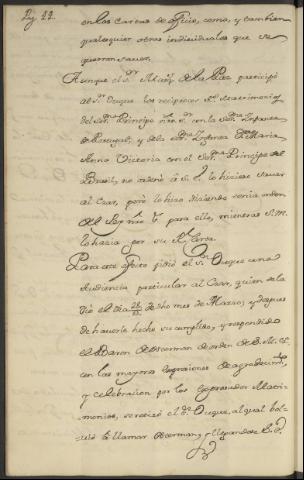 Pg. 22.
en las Cartas de oficio, como, y tambien
qualesquier otros individuales que se
quieran saver.
Aunque el S.r Marq.s de la Paz participò
al S.r Duque los reciprocos R.s Matrimonios
del Ser.mo Principe nro S.r con la Ser.ma Infanta
de Portugal; y de la Ser.ma Infanta D.a Maria
Anna Victoria con el Ser.mo Principe del
Brasil, no ordenò à S. E. lo hiciese saver
al Czar, però lo hizo diciendo tenia orden
del Rey nro S.r para ello, mientras S. M.
lo hacia por su R.l Carta.
Para este efecto pidiò el S.r Duque una
Audiencia particular al Czar, quien se la
diò el dia de dho mes de Marzo, y despues
de haverle hecho su cumplido, y respondido
el Baron de Osterman de orden de S. M. Cz.
con las mayores expresiones de agradecim.to
y celebration por los expresados Matri-
monios, se retirò el S.r Duque, al qual bol-
viò à llamar Osterman, y llegando S. E.